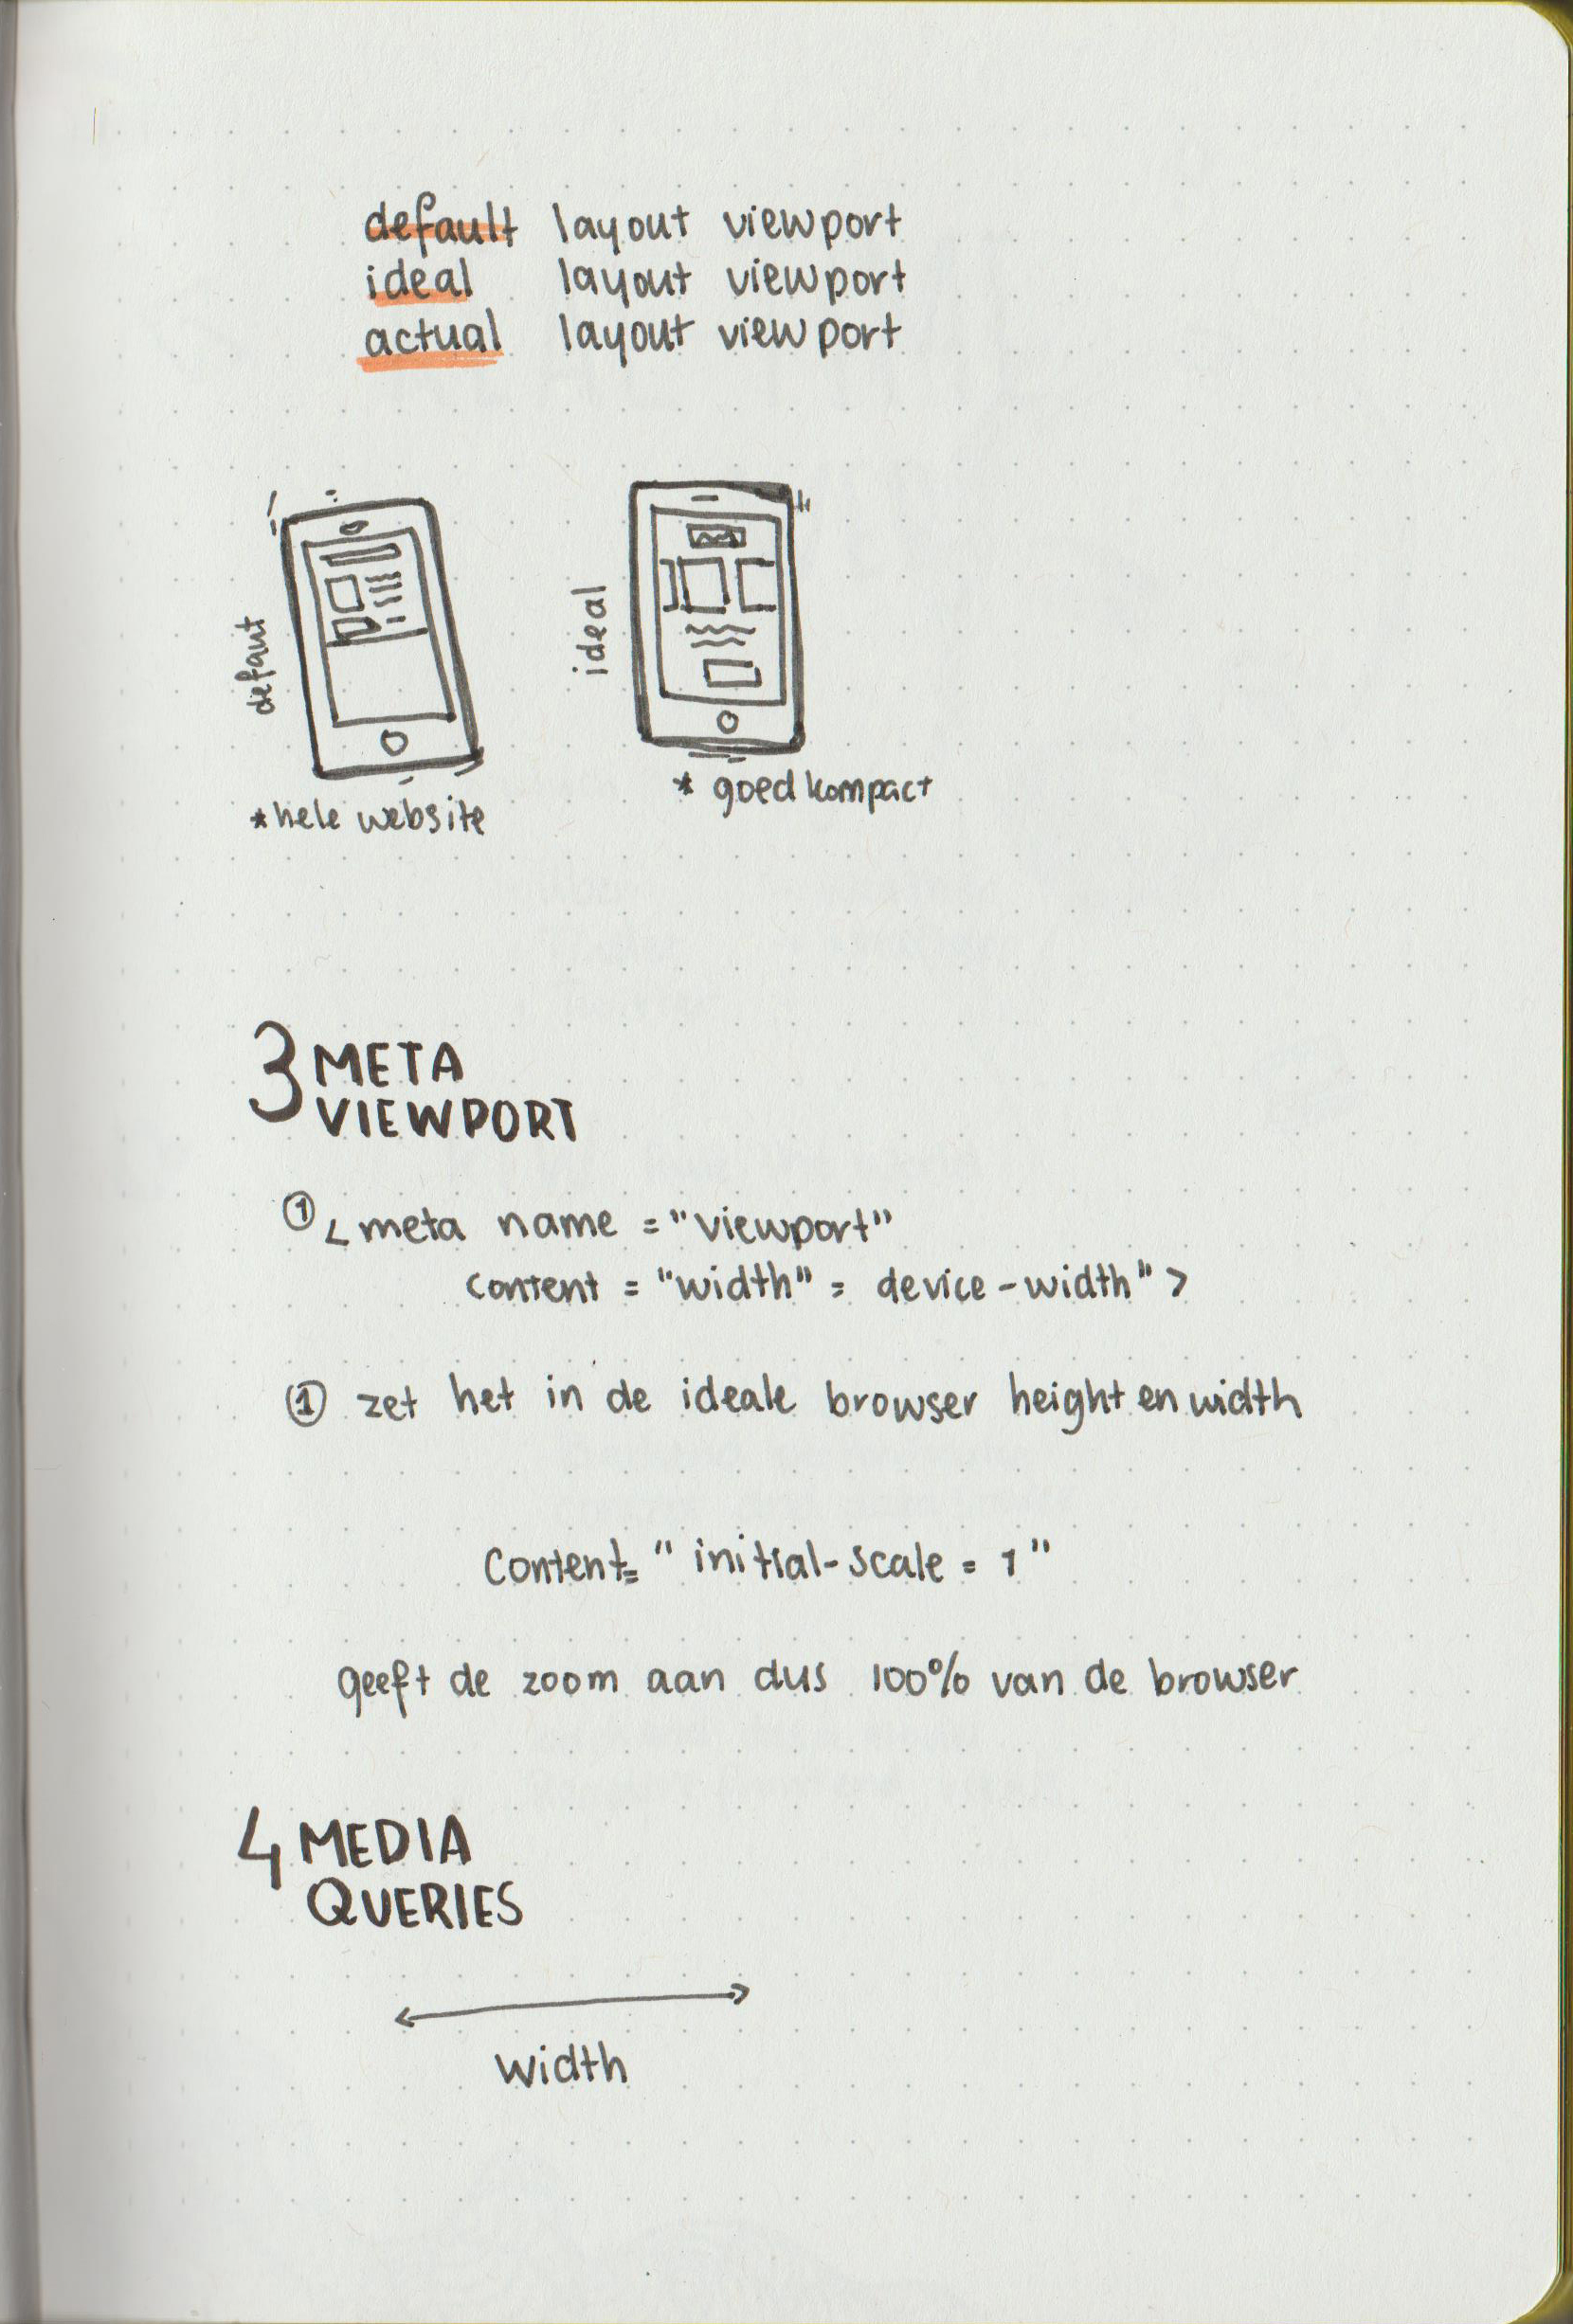 default layout viewport
ideal layout viewport
actual layout viewport
defaut
ideal
*hele website
* goed kompact
3 META
VIEWPORT
① <meta name ="viewport"
content = "width" = device-width">
① zet het in de ideale browser height en width
Content= "initial-scale = 1"
geeft de zoom aan dus 100% van de browser
4 MEDIA
QUERIES
width